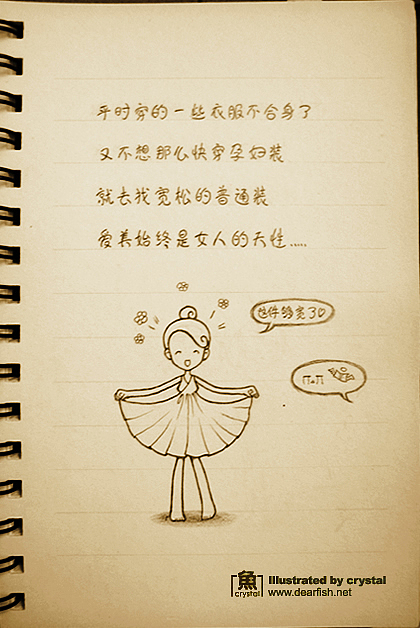 平时穿的一些衣服不合身了
又不想那么快穿孕妇装
就去找宽松的普通装
爱美始终是女人的天性.....
这件够宽了♡
П_П
魚
crystal
Illustrated by crystal
www.dearfish.net